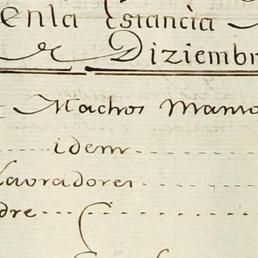 enla Estancia
Diziembr
Machos Manso
idem
lavradores
dre